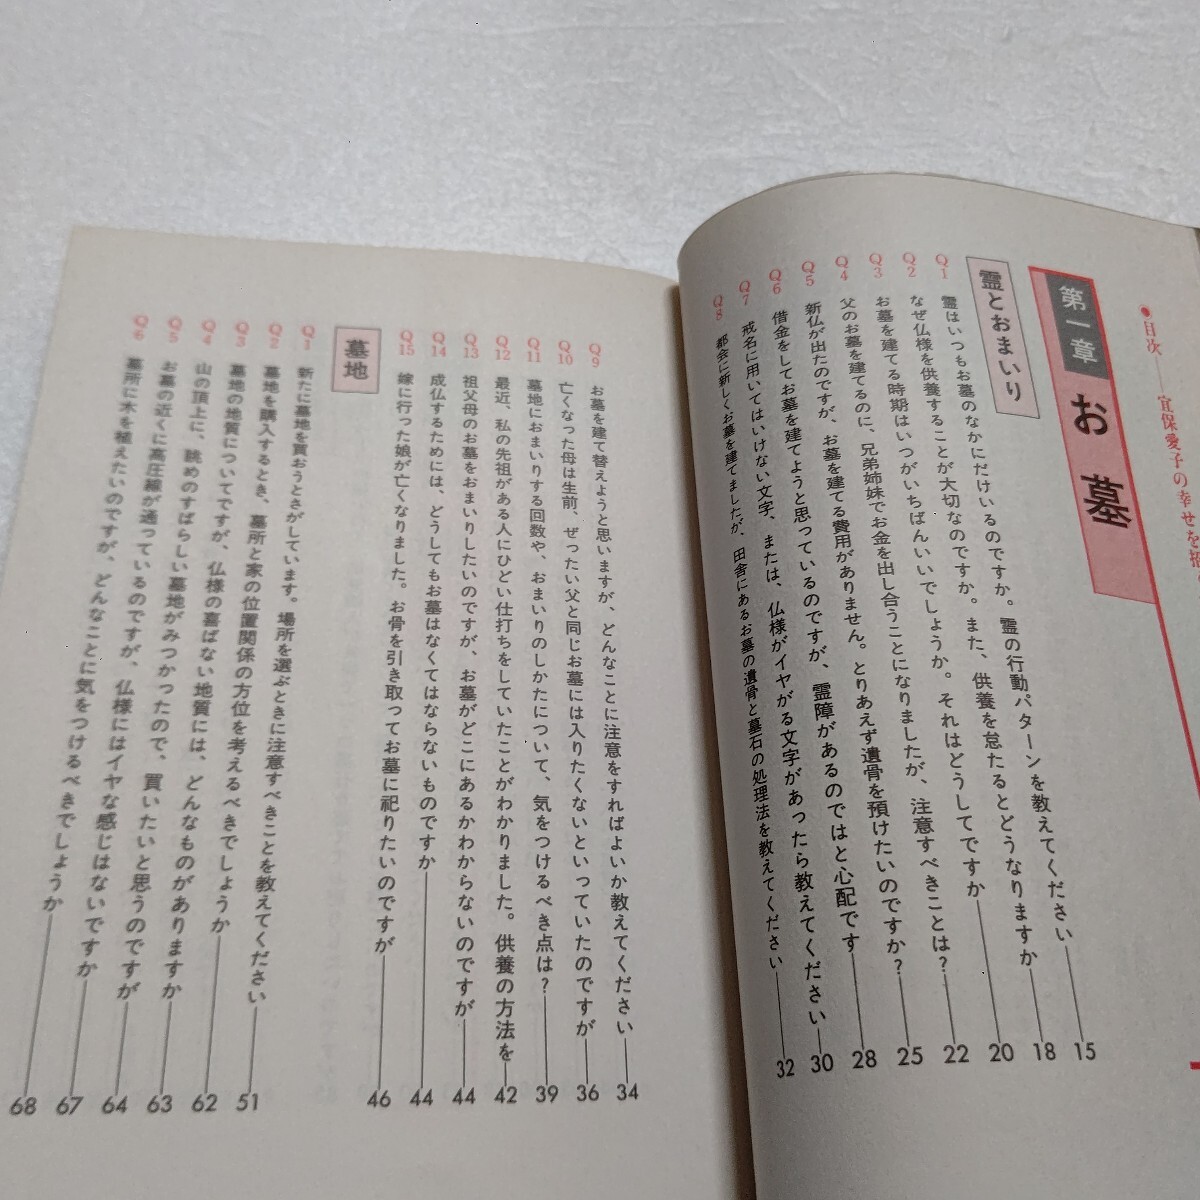 ●目次――宜保愛子の幸せを招
第一章 お墓
霊とおまいり
Q1 霊はいつもお墓のなかにだけいるのですか。霊の行動パターンを教えてください――15
Q2 なぜ仏様を供養することが大切なのですか。また、供養を怠たるとどうなりますか――18
Q3 お墓を建てる時期はいつがいちばんいいでしょうか。それはどうしてですか――20
Q4 父のお墓を建てるのに、兄弟姉妹でお金を出し合うことになりましたが、注意すべきことは?――22
Q5 新仏が出たのですが、お墓を建てる費用がありません。とりあえず遺骨を預けたいのですか?――25
Q6 借金をしてお墓を建てようと思っているのですが、霊障があるのではと心配です――28
Q7 戒名に用いてはいけない文字、または、仏様がイヤがる文字があったら教えてください――30
Q8 都会に新しくお墓を建てましたが、田舎にあるお墓の遺骨と墓石の処理法を教えてください――32
Q9 お墓を建て替えようと思いますが、どんなことに注意をすればよいか教えてください――34
Q10 亡くなった母は生前、ぜったい父と同じお墓には入りたくないといっていたのですが――36
Q11 墓地におまいりする回数や、おまいりのしかたについて、気をつけるべき点は?――39
Q12 最近、私の先祖がある人にひどい仕打ちをしていたことがわかりました。供養の方法を――42
Q13 祖父母のお墓をおまいりしたいのですが、お墓がどこにあるかわからないのですが――44
Q14 成仏するためには、どうしてもお墓はなくてはならないものですか――44
Q15 嫁に行った娘が亡くなりました。お骨を引き取ってお墓に祀りたいのですが――46
墓地
Q1 新たに墓地を買おうとさがしています。場所を選ぶときに注意すべきことを教えてください――51
Q2 墓地を購入するとき、墓所と家の位置関係の方位を考えるべきでしょうか――62
Q3 墓地の地質についてですが、仏様の喜ばない地質には、どんなものがありますか――63
Q4 山の頂上に、眺めのすばらしい墓地がみつかったので、買いたいと思うのですが――64
Q5 お墓の近くに高圧線が通っているのですが、仏様にはイヤな感じはないですか――67
Q6 墓所に木を植えたいのですが、どんなことに気をつけるべきでしょうか――68